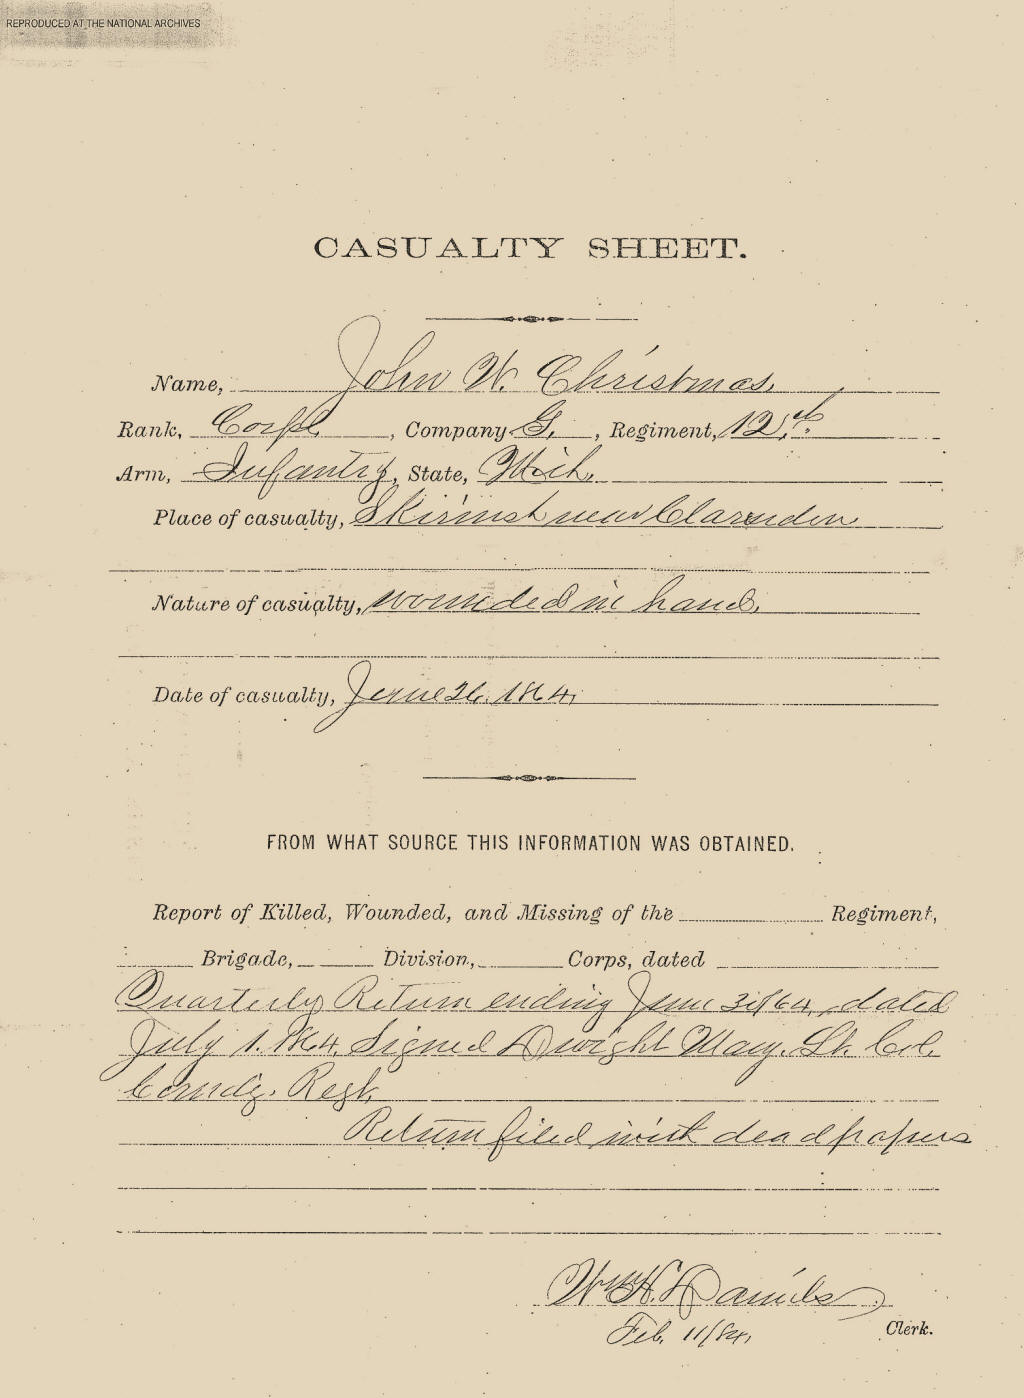 REPRODUCED AT THE NATIONAL ARCHIVES
CASUALTY SHEET.
Name, John W. Christmas,
Rank, Corpl, Company G, Regiment, 12th
Arm, Infantry, State, Mich.
Place of casualty, Skirmish near Clarendon
Nature of casualty, wounded in hand,
Date of casualty, June 26, 1864,
FROM WHAT SOURCE THIS INFORMATION WAS OBTAINED.
Report of Killed, Wounded, and Missing of the Regiment,
Brigade, Division, Corps, dated
Quarterly Return ending June 30/64, dated
July 1. 1864, Signed Dwight May. Lt. Col.
Comdg. Regt.
Return filed with dead papers
Wm H. Daniels
Feb. 11/84, Clerk.